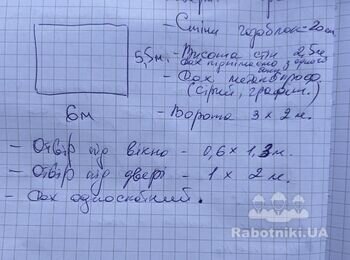 - Стіни газоблок - 20см
- Висота стін 2,5м.
дах піднімаємо з одного боку
- Дах металопроф.
(сірий, графит.)
5,5м.
6м
- Ворота 3 x 2 м.
- Отвір під вікно - 0,6 x 1,3 м.
- Отвір під двері - 1 x 2 м.
- Дах односкатний.
Rabotniki.UA